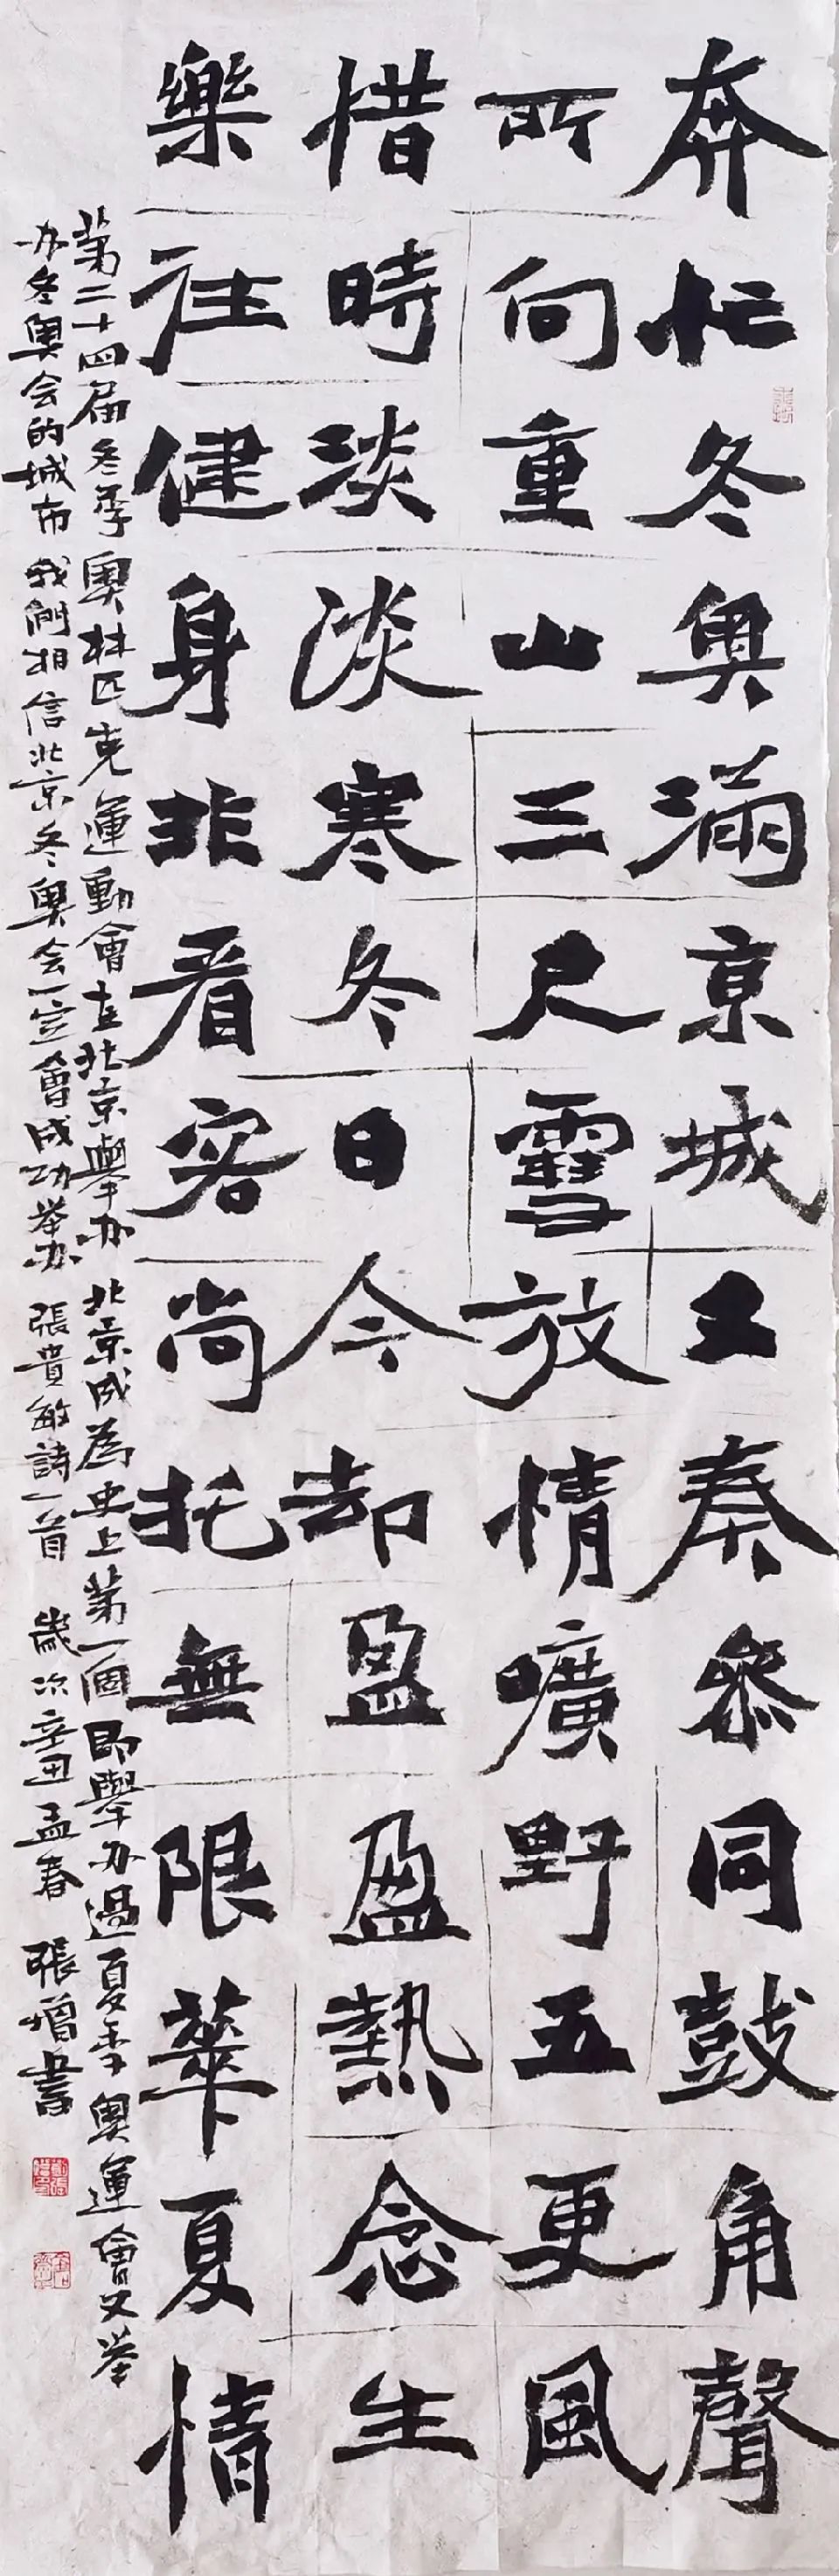 奔忙冬奥滿京城又奏叅同鼓角聲
所向重山三尺雪放情曠野五更風
惜時淡淡寒冬日今却盈盈熱念生
樂往健身非看客尚托無限華夏情
第二十四届冬季奧林匹克運動會在北京舉办 北京成為史上第一個即舉办過夏季奧運會又举
办冬奧会的城市 我們相信北京冬奧会一定會成功举办 張貴敏詩一首 歲次辛丑孟春 張增書